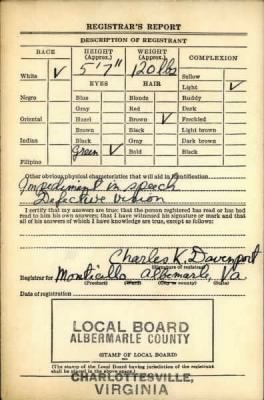 REGISTRAR'S REPORT
DESCRIPTION OF REGISTRANT
RACE HEIGHT (Approx.) WEIGHT (Approx.) COMPLEXION
5'7" 120 lbs
Sallow
White ✓ EYES HAIR Light ✓
Negro Blue Blonde Ruddy
Gray Red Dark
Oriental Hazel Brown ✓ Freckled
Brown Black Light brown
Indian Black Gray Dark brown
Green ✓ Bald Black
Filipino
Other obvious physical characteristics that will aid in identification
Impediment in speech
Defective vision
I certify that my answers are true; that the person registered has read or has had
read to him his own answers; that I have witnessed his signature or mark and that
all of his answers of which I have knowledge are true, except as follows:
Charles K. Davenport
(Signature of registrar)
Registrar for Monticello Albemarle, Va
(Precinct) (Ward) (City or county) (State)
Date of registration
LOCAL BOARD
ALBERMARLE COUNTY
(STAMP OF LOCAL BOARD)
(The stamp of the Local Board having jurisdiction of the registrant
shall be placed in the above space.)
CHARLOTTESVILLE,
VIRGINIA